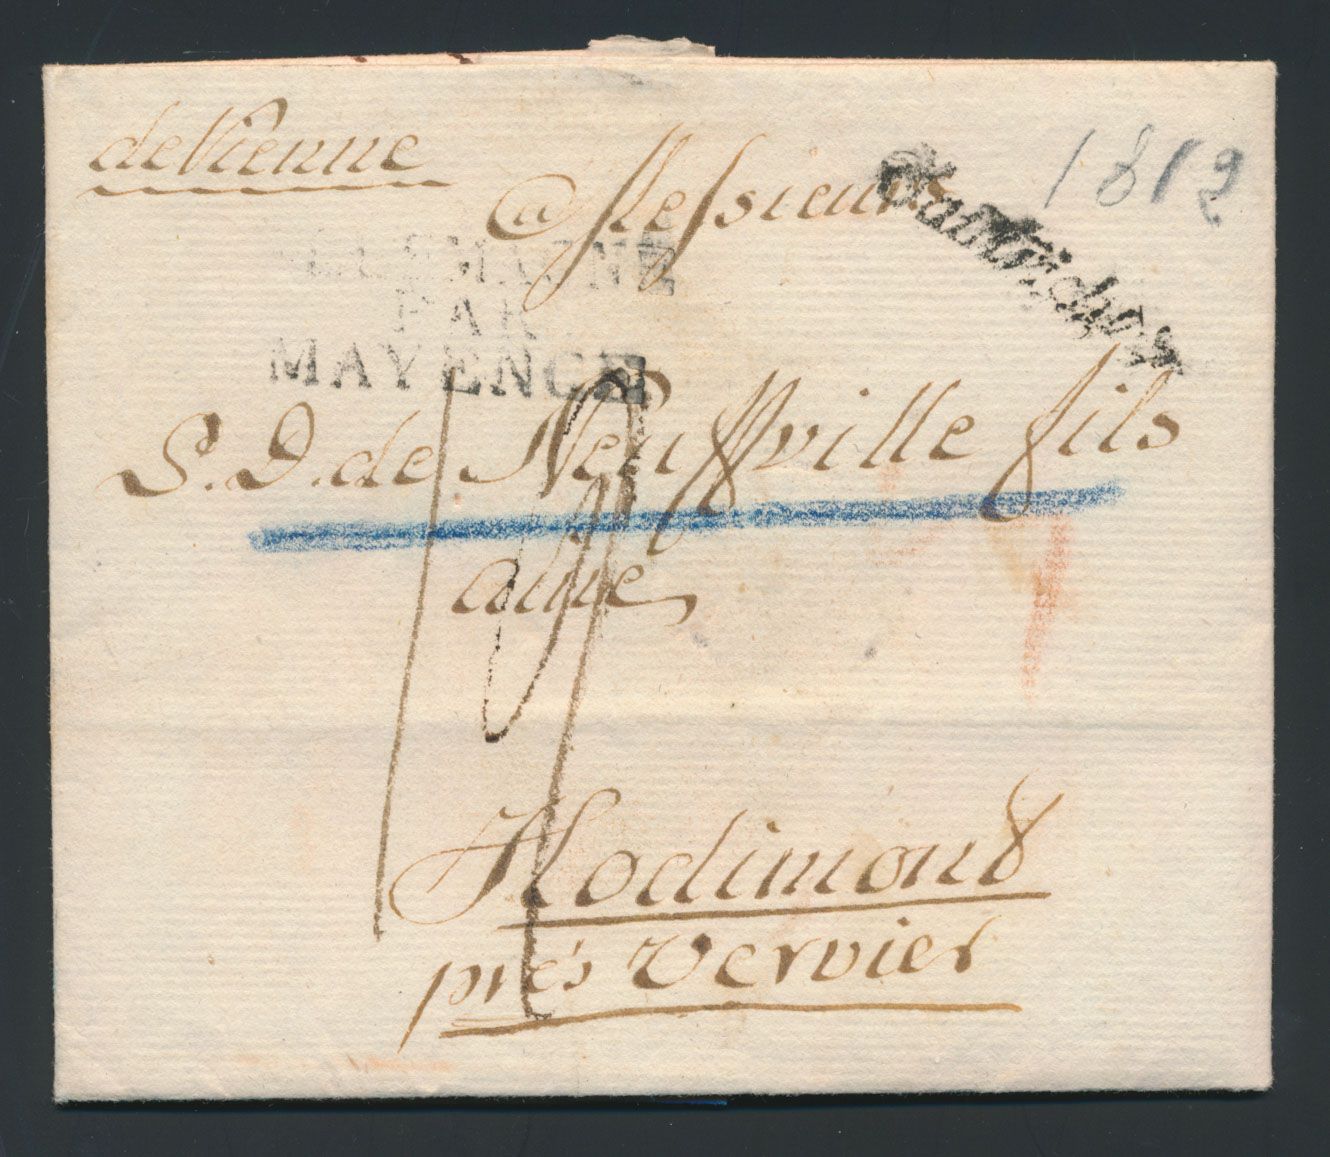 de Vienne
1812
a Messieurs
ALLEMAGNE
PAR
MAYENCE
S. D. de Neuffville fils
aine
Hodimond
prés Vervier